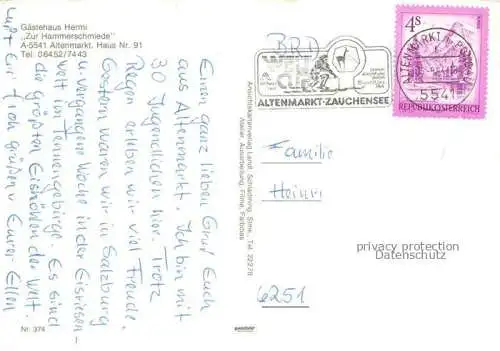 Gästehaus Hermi
„Zur Hammerschmiede"
A-5541 Altenmarkt, Haus Nr. 91
Tel. 06452/7443
Einen ganz lieben Gruß Euch
aus Altenmarkt. Ich bin mit
30 Jugendlichen hier. Trotz
Regen erleben wir viel Freude.
Gestern waren wir in Salzburg
u. vergangene Woche in der Eisriesen
welt im Tennengebirge. Es sind
die größten Eishöhlen der Welt.
Euch grüßen Eure Ellen
Nr. 374
Ansichtskartenverlag Landl, Schladming, Stmk., Tel. 22278
BRD
ALTENMARKT-ZAUCHENSEE
ALTENMARKT
5541
4S
REPUBLIK ÖSTERREICH
Familie
Heinri
6251
privacy protection
Datenschutz